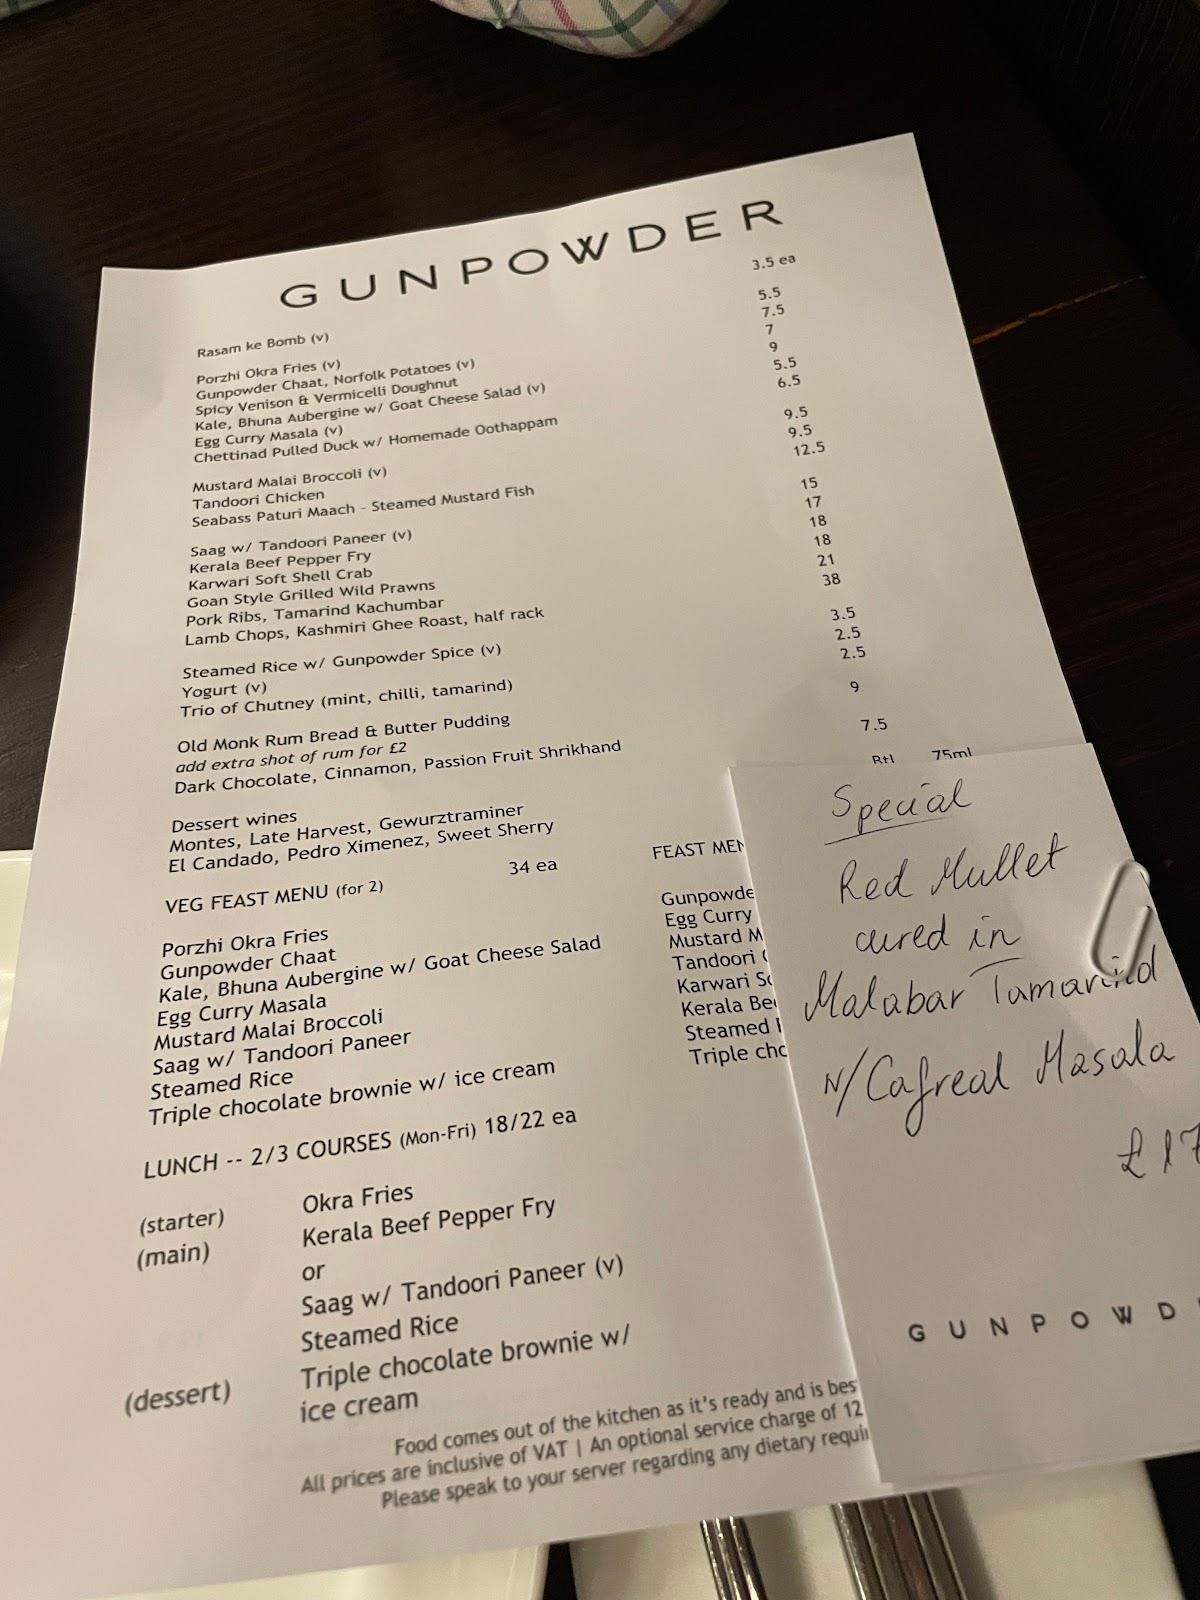 GUNPOWDER
Rasam ke Bomb (v) 3.5 ea
Porzhi Okra Fries (v) 5.5
Gunpowder Chaat, Norfolk Potatoes (v) 7.5
Spicy Venison & Vermicelli Doughnut 7
Kale, Bhuna Aubergine w/ Goat Cheese Salad (v) 9
Egg Curry Masala (v) 5.5
Chettinad Pulled Duck w/ Homemade Oothappam 6.5
Mustard Malai Broccoli (v) 9.5
Tandoori Chicken 9.5
Seabass Paturi Maach - Steamed Mustard Fish 12.5
Saag w/ Tandoori Paneer (v) 15
Kerala Beef Pepper Fry 17
Karwari Soft Shell Crab 18
Goan Style Grilled Wild Prawns 18
Pork Ribs, Tamarind Kachumbar 21
Lamb Chops, Kashmiri Ghee Roast, half rack 38
Steamed Rice w/ Gunpowder Spice (v) 3.5
Yogurt (v) 2.5
Trio of Chutney (mint, chilli, tamarind) 2.5
Old Monk Rum Bread & Butter Pudding 9
add extra shot of rum for £2
Dark Chocolate, Cinnamon, Passion Fruit Shrikhand 7.5
Dessert wines Btl 75ml
Montes, Late Harvest, Gewurztraminer
El Candado, Pedro Ximenez, Sweet Sherry
VEG FEAST MENU (for 2) 34 ea
Porzhi Okra Fries
Gunpowder Chaat
Kale, Bhuna Aubergine w/ Goat Cheese Salad
Egg Curry Masala
Mustard Malai Broccoli
Saag w/ Tandoori Paneer
Steamed Rice
Triple chocolate brownie w/ ice cream
FEAST MEN
Gunpowde
Egg Curry
Mustard M
Tandoori
Karwari So
Kerala Bee
Steamed
Triple cho
LUNCH -- 2/3 COURSES (Mon-Fri) 18/22 ea
(starter) Okra Fries
(main) Kerala Beef Pepper Fry
or
Saag w/ Tandoori Paneer (v)
Steamed Rice
(dessert) Triple chocolate brownie w/
ice cream
Food comes out of the kitchen as it's ready and is bes
All prices are inclusive of VAT | An optional service charge of 12
Please speak to your server regarding any dietary requi
Special
Red Mullet
cured in
Malabar Tamarind
w/Cafreal Masala
£17
GUNPOWD